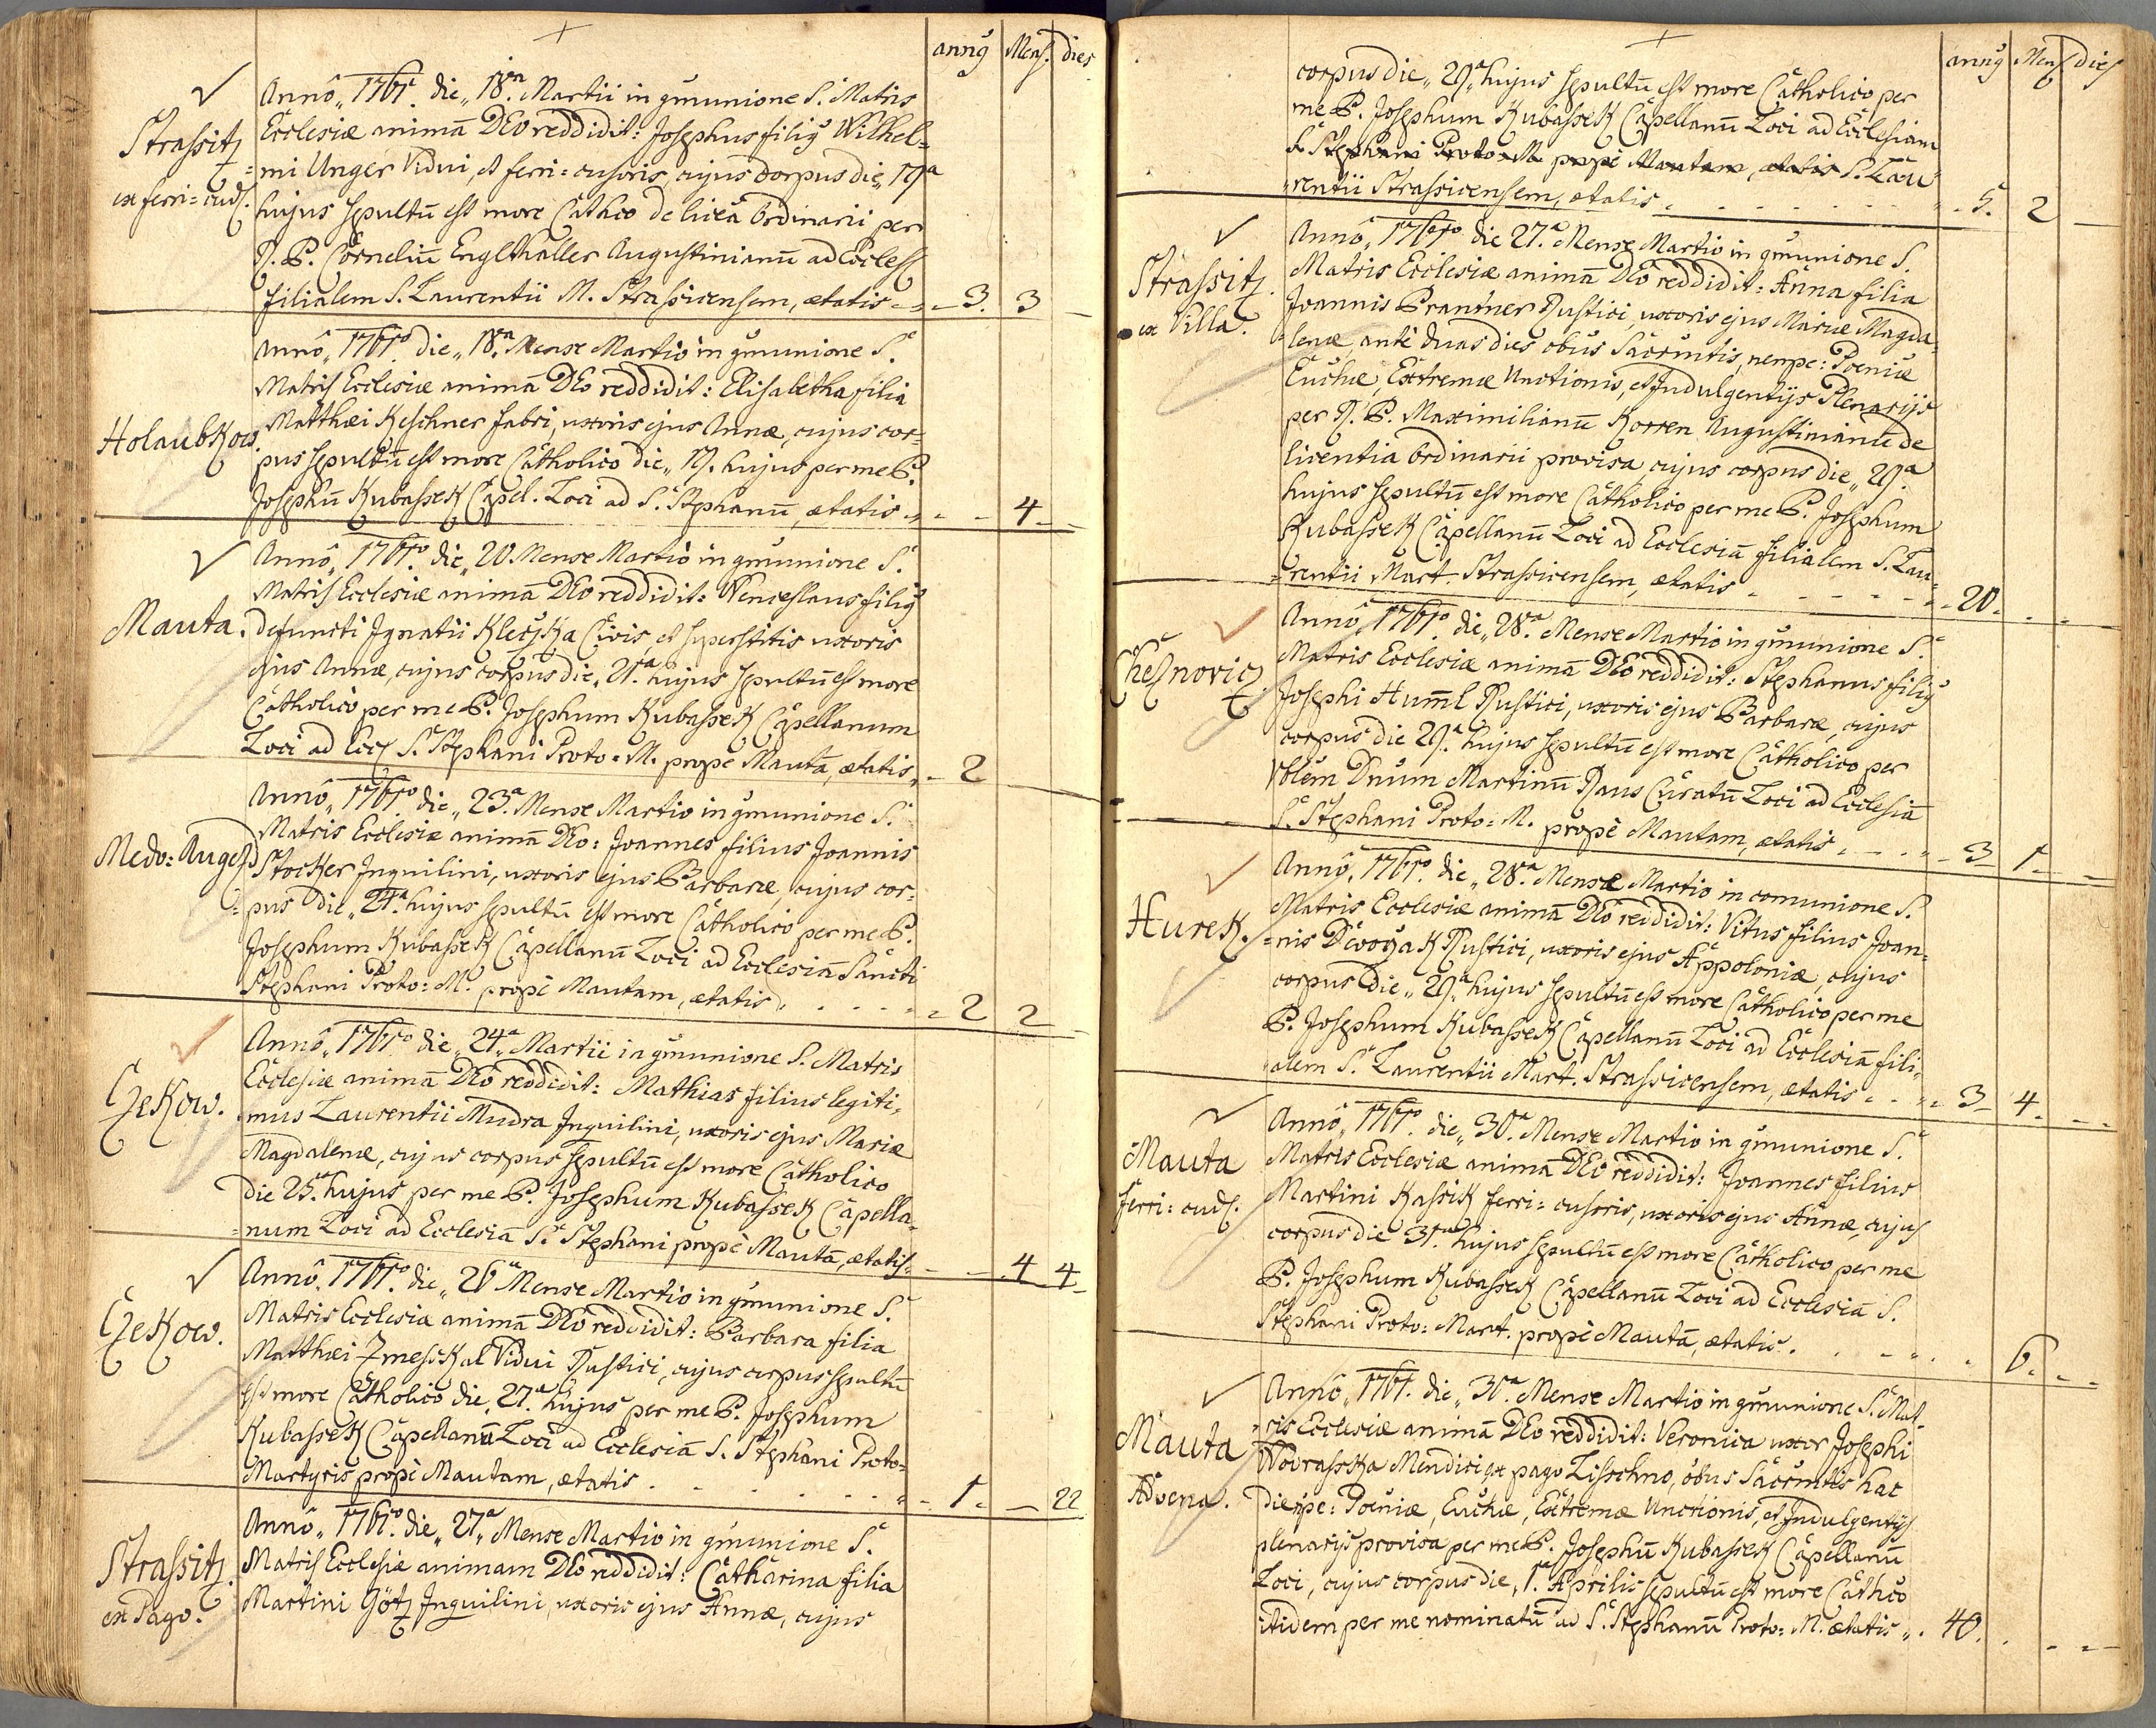 annꝰ Mens. dies
Annô„ 1761. die„ 18. Martii in gmunione S. Matris
Strassitz Ecclesiæ animā DEo reddidit: Josephus filiꝰ Wilhel=
=mi Unger Vidui, et ferri=cusoris, cujus corpus die„ 19ª
ex ferri=cud. hujus sepultū est more Cathco de licā Ordinarii per
R. P. Corneliū Englthaller Augustinianū ad Eccles
filialem S. Laurentii M. Strassicensem, ætatis 3. 3
Annô„ 1761º die„ 18ª Mense Martio in gmunione S.
Matris Ecclesiæ animā DEo reddidit: Elisabetha filia
Holaubkow. Matthæi Keschner fabri, uxoris ejus Annæ, cujus cor=
pus sepultū est more Catholico die„ 19. hujus per me P.
Josephū Kubassek Capel. Loci ad S. Stephanū, ætatis 4
Annô„ 1761º die„ 20 Mense Martio in gmunione S.
Matris Ecclesiæ animā DEo reddidit: Wenceslaus filiꝰ
Mauta. defuncti Ignatii Kleczka Civis, et superstitis uxoris
ejus Annæ, cujus corpus die„ 21ª hujus sepultū est more
Catholico per me P. Josephum Kubassek Capellanum
Loci ad Eccl S. Stephani Proto=M. prope Mautā, ætatis 2
Annô„ 1761º die„ 23ª Mense Martio in gmunione S.
Matris Ecclesiæ animā DEo: Joannes filius Joannis
Medo:Augezd Stocker Inquilini, uxoris ejus Barbaræ, cujus cor=
=pus die„ 24ª hujus sepultū est more Catholico per me P.
Josephum Kubassek Capellanū Loci ad Ecclesiā Sancti
Stephani Proto:M. propè Mautam, ætatis 2 2
Annô„ 1761º die„ 24ª Martii in gmunione S. Matris
Ecclesiæ animā DEo reddidit: Mathias filius legiti=
Czekow. mus Laurentii Mudra Inquilini, uxoris ejus Mariæ
Magdalenæ, cujus corpus sepultū est more Catholico
die 25ª hujus per me P. Josephum Kubassek Capella=
=num Loci ad Ecclesiā S. Stephani propè Mautā, ætatis 4 4
Annô„ 1761º die„ 26 Mense Martio in gmunione S.
Czekow. Matris Ecclesiæ animā DEo reddidit: Barbara filia
Matthæi Zmesskal Vidui Rustici, cujus corpus sepultū
est more Catholico die„ 27ª hujus per me P. Josephum
Kubassek Capellanū Loci ad Ecclesiā S. Stephani Proto=
Martyris propè Mautam, ætatis 1. 22
Annô„ 1761º die„ 27ª Mense Martio in gmunione S.
Strassitz Matris Ecclesiæ animam DEo reddidit: Catharina filia
ex Pago. Martini Götz Inquilini, uxoris ejus Annæ, cujus
annꝰ Mens dies
corpus die„ 29ª hujus sepultū est more Catholico per
me P. Josephum Kubassek Capellanū Loci ad Ecclesiam
S. Stephani Proto=M. propè Mautam, ætatis S. Lau=
=rentii Strassicensem, ætatis 5. 2
Annô„ 1761º die 27ª Mense Martio in gmunione S.
Strassitz Matris Ecclesiæ animā DEo reddidit: Anna filia
ex Villa. Joannis Brantner Rustici, uxoris ejus Mariæ Magda=
=lenæ, antè duas dies obus Sacrmtis, nempe: Pœniæ
Euchæ, Extremæ Unctionis, et Indulgentijs Plenarijs
per R. P. Maximilianū Korren Augustinianū de
licentia Ordinarii provisa cujus corpus die„ 29ª
hujus sepultū est more Catholico per me P. Josephum
Kubassek Capellanū Loci ad Ecclesiā filialem S. Lau=
=rentii Mart. Strassicensem, ætatis 20.
Annô„ 1761º die„ 28ª Mense Martio in gmunione S.
Chesnovicz Matris Ecclesiæ animā DEo reddidit: Stephanus filiꝰ
Josephi Hum̄l Rustici, uxoris ejus Barbaræ, cujus
corpus die 29ª hujus sepultū est more Catholico per
Vblem Dnum Martinū Raus Curatū Loci ad Ecclesiā
S. Stephani Proto=M. propè Mautam, ætatis 3 1
Annô„ 1761º die„ 28ª Mense Martio in comunione S.
Hurek. Matris Ecclesiæ animā DEo reddidit: Vitus filius Joan=
=nis Dworzak Rustici, uxoris ejus Appoloniæ, cujus
corpus die„ 29ª hujus sepultū est more Catholico per me
P. Josephum Kubassek Capellanū Loci ad Ecclesiā fili=
=alem S. Laurentii Mart. Strassicensem, ætatis 3 4
Annô„ 1761º die„ 30ª Mense Martio in gmunione S.
Mauta Matris Ecclesiæ animā DEo reddidit: Joannes filius
ferri=cud. Martini Kassik ferri=cusoris, uxoris ejus Annæ, cujus
corpus die 31ª hujus sepultū est more Catholico per me
P. Josephum Kubassek Capellanū Loci ad Ecclesiā S.
Stephani Proto:Mart. propè Mautā, ætatis. 6.
Annô„ 1761. die„ 31ª Mense Martio in gmunione S. Mat=
=ris Ecclesiæ animā DEo reddidit: Veronica uxor Josephi
Mauta Wowrasska Mendici ex pago Lisschno, obus Sacrmtis hac
Advena. die npe: Pœniæ, Euchæ, Extremæ Unctionis, et Indulgentijs
plenarijs provisa per me P. Josephū Kubassek Capellanū
Loci, cujus corpus die„ 1ª Aprilis sepultū est more Cathco
itidem per me nominatū ad S. Stephanū Proto=M. ætatis 40.